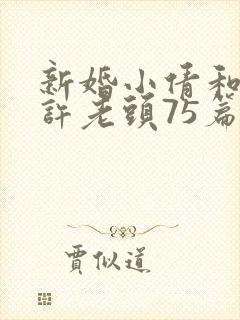 新婚小倩和
許老頭75篇
賈似道